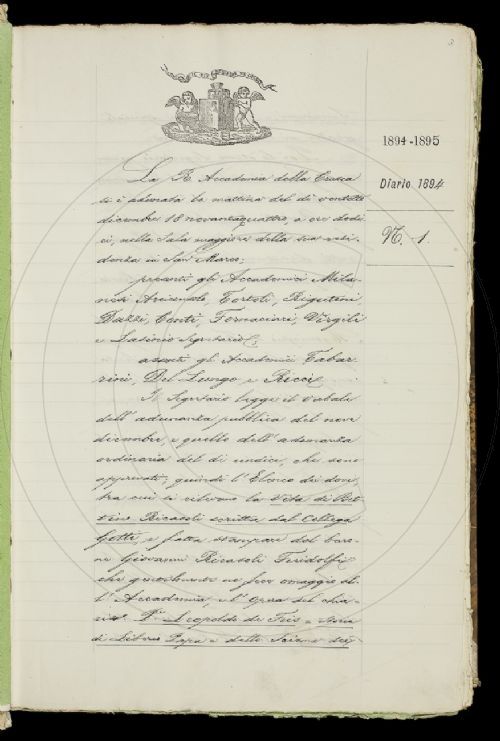 3
1894-1895
Diario 1894
N. 1.
La R. Accademia della Crusca
si è adunata la mattina del dì ventotto
dicembre 18 novantaquattro, a ore dodi
ci, nella Sala maggiore della sua resi-
denza in San Marco;
presenti gli Accademici Mila-
nesi Arciconsolo, Tortoli, Rigutini,
Dazzi, Conti, Fornaciari, Virgili
e Labinio Segretario;
assenti gli Accademici Tabar
rini, Del Lungo e Ricci.
Il Segretario legge il Verbale
dell'adunanza pubblica del nove
dicembre, e quello dell'adunanza
ordinaria del dì undici, che sono
approvati; quindi l'Elenco dei doni,
tra cui si rilevano la Vita di Bet
tino Ricasoli scritta dal Collega
Gotti, e fatta stampare dal baro-
ne Giovanni Ricasoli Firidolfi,
che ne fece omaggio al
l'Accademia, e l'opera del chia-
P. Leopoldo de Feis - Storia
di Liberio Papa e dello Scisma dei